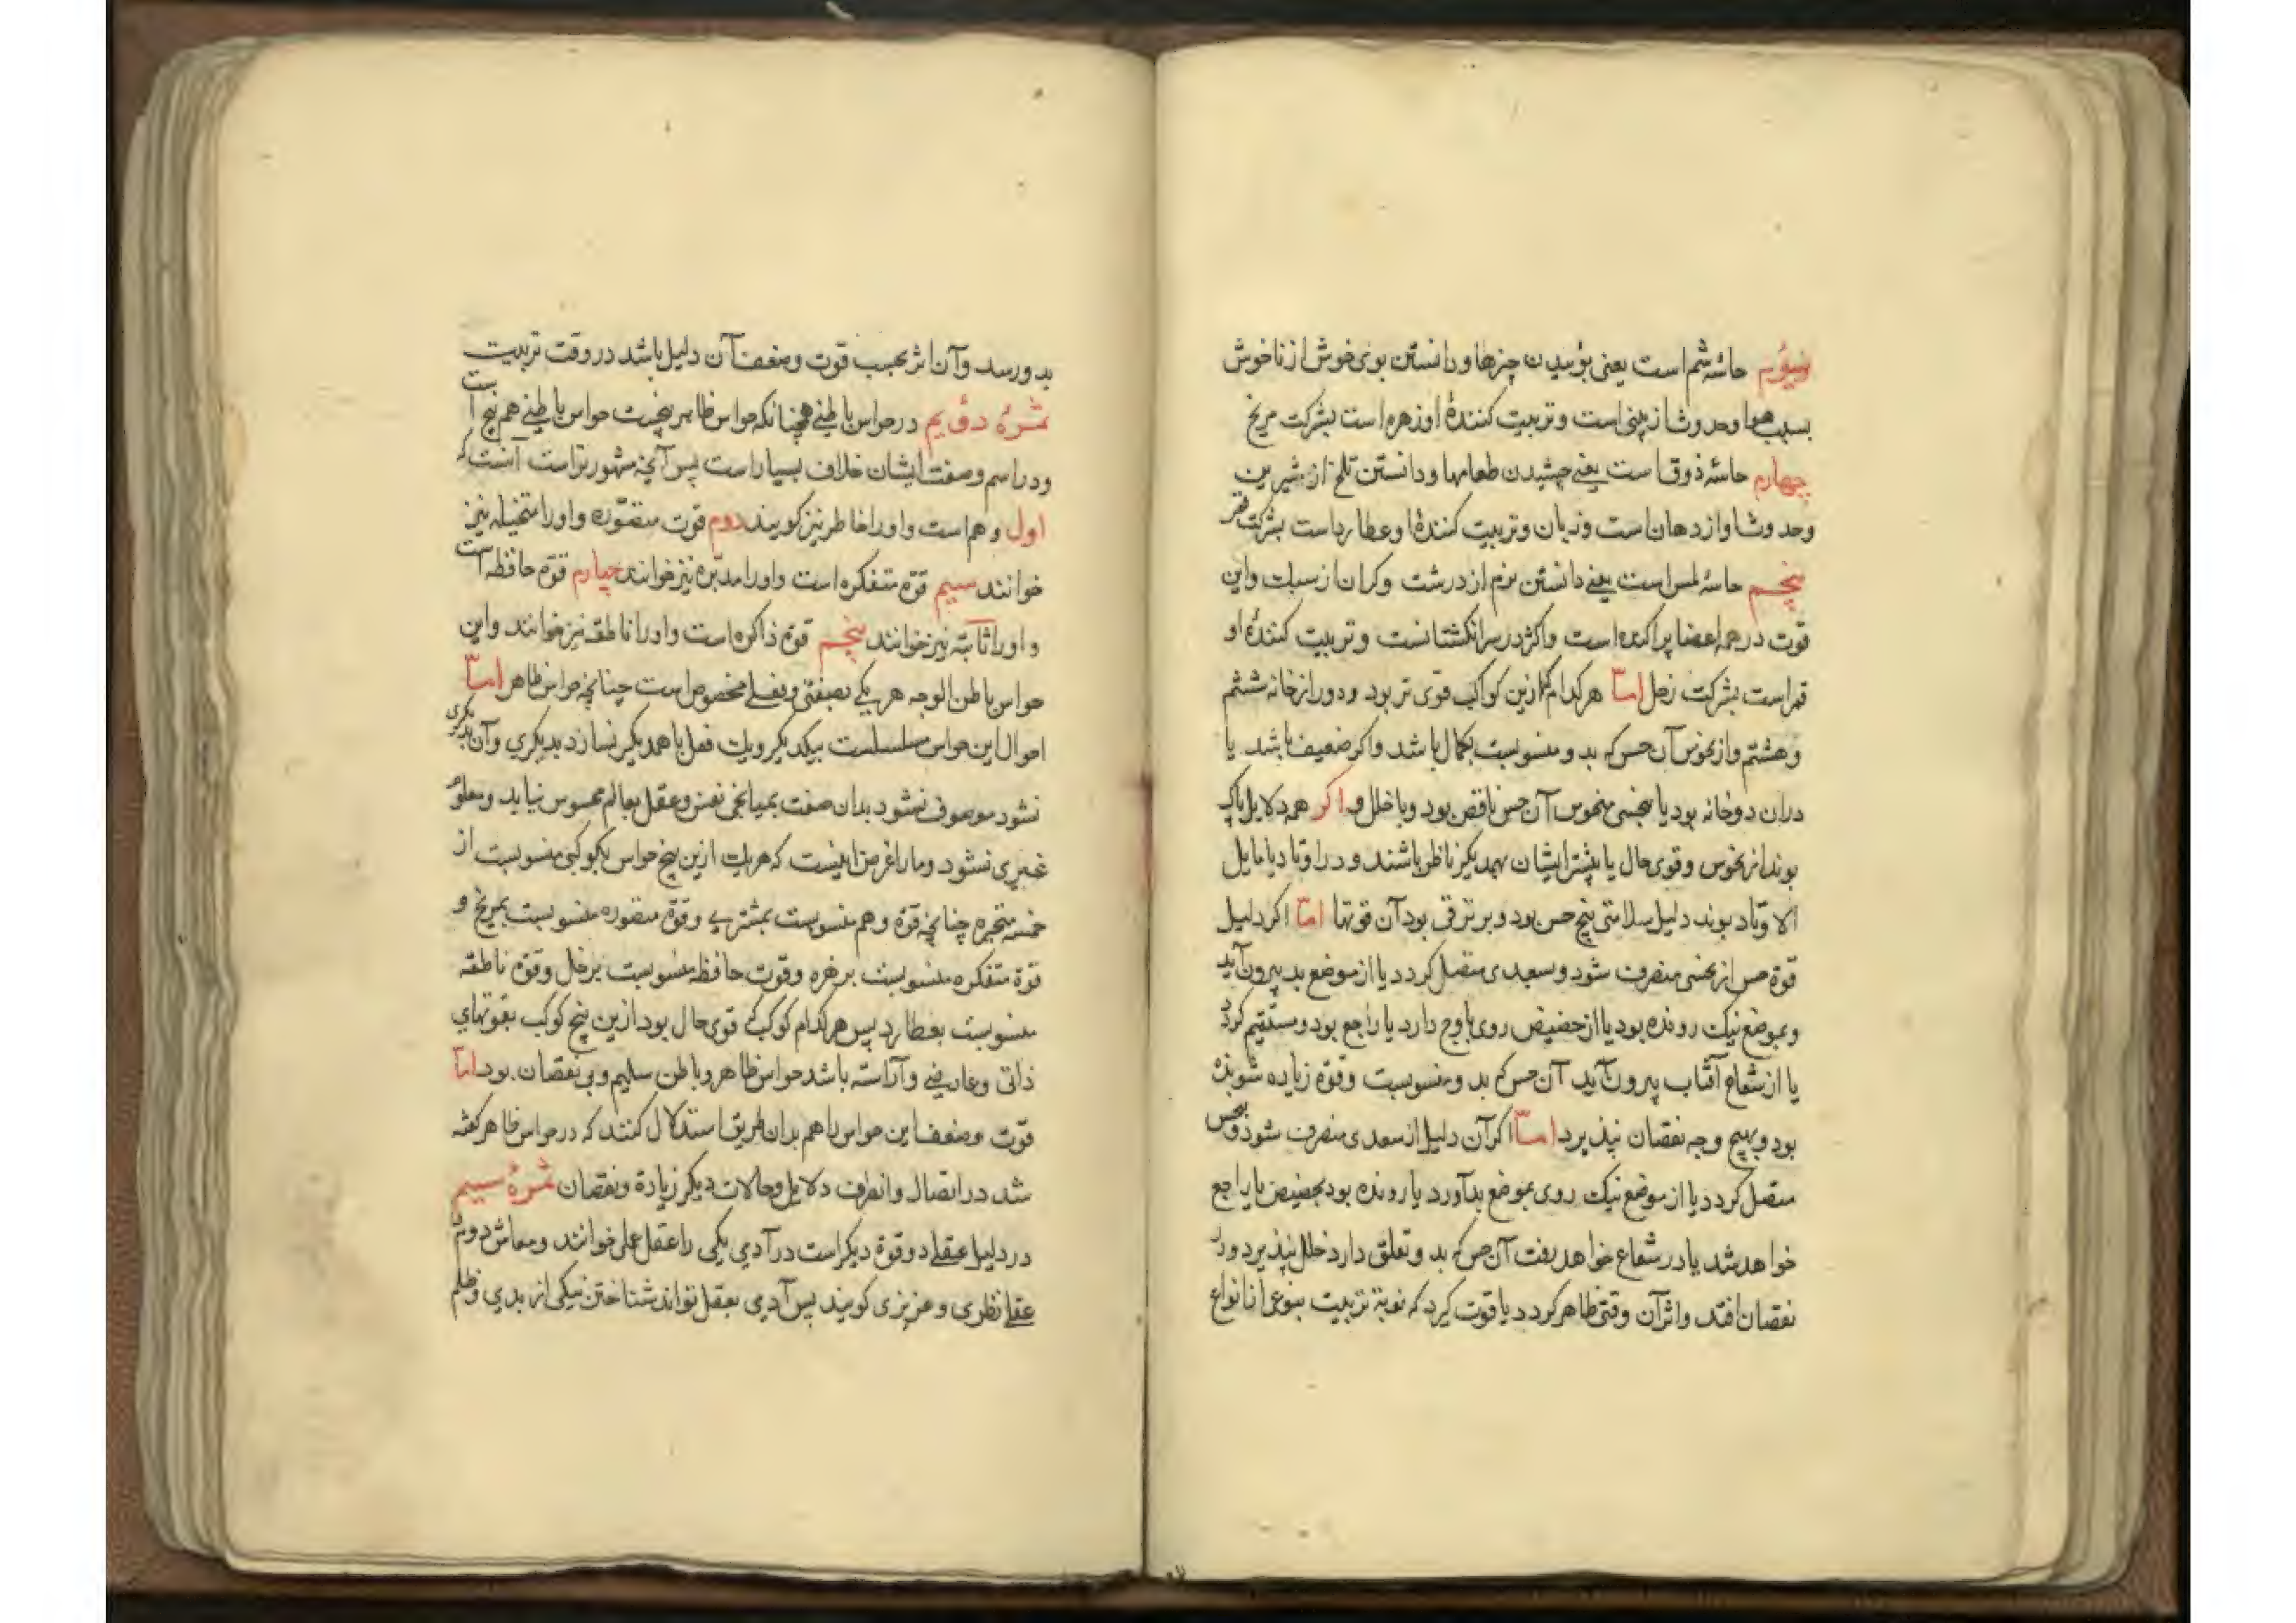 سیوم حاسّهٔ شم است یعنی بوئیدن چیزها و دانستن بوی خوش از ناخوش
بسبب هوا و حدوث از بینی است و تربیت کنندهٔ او زهره است بشرکت مریخ
چهارم حاسّهٔ ذوق است یعنے چشیدن طعامها و دانستن تلخ از شیرین
و حدوث او از دهان است و زبان و تربیت کنندهٔ او عطارد است بشرکت قمر
پنجم حاسّهٔ لمس است یعنے دانستن نرم از درشت و کران از سبک و این
قوت در همه اعضا پراکنده است و اکثر در سرانکشتانست و تربیت کنندهٔ او
قمر است بشرکت زحل امّا هر کدام کزین کواکب قوی تر بود و دور از خانه ششم
و هشتم و از نحوس آن حس که بدو منسوبست بکمال باشد و اکر ضعیف باشد یا
در ان دو خانه بود یا بنحسی منحوس آن حس ناقص بود و با خلل و اکر همه دلایل پاک
بوند از نحوس و قوی حال یا بیشتر ایشان بهمدیکر ناظر باشند و در اوتاد یا مایل
الاوتاد بوند دلیل سلامتی پنج حس بود و بر ترقی بود آن قوتها امّا اکر دلیل
قوة حس از نحسی منصرف شود و بسعدی متصل کردد یا از موضع بد بیرون آید
و بموضع نیک رونده بود یا از حضیض روی باوج دارد یا راجع بود و مستقیم کردد
یا از شعاع آفتاب بیرون آید آن حس که بدو منسوبست و قوة زیاده شونده
بود و بهیچ وجه نقصان نپذیرد امّا اکر آن دلیل از سعدی منصرف شود و بنحس
متصل کردد یا از موضع نیک روی بموضع بد آورد یا رونده بود بحضیض یا راجع
خواهد شد یا در شعاع خواهد رفت آن حس که بدو تعلق دارد خلل پذیرد و در
نقصان افتد و اثر آن وقتی ظاهر کردد یا قوت کیرد که نوبة تربیت بنوعی از انواع
بدو رسد و آن اثر بحسب قوت و ضعف آن دلیل باشد در وقت تربیت
ثمرهٔ دویم در حواس باطنے همچنانکه حواس ظاهر پنجست حواس باطنے هم پنج است
و در اسم و صفت ایشان خلاف بسیار است پس آنچه مشهورتر است آنست که
اول وهم است و او را خاطر نیز کویند دوم قوت متصوّره و او را متخیله نیز
خوانند سیم قوّة متفکره است و او را مدبّره نیز خوانند چهارم قوّة حافظه است
و او را ثابتة نیز خوانند پنجم قوّة ذاکره است و او را ناطقه نیز خوانند و این
حواس باطن الوجه هر یکے بصفتی و بفعلے مخصوص است چنانچه حواس ظاهر امّا
احوال این حواس مسلسلست بیکدیکر و یک فعل با همدیکر نسازد بدیکری و آن بدیکری
نشود موصوف نشود بدان صفت بمیانجی نفس و عقل بعالم محسوس نیاید و معلوم
غیری نشود و ما را غرض اینست که هر یک ازین پنج حواس بکوکبی منسوبست از
خمسه متحیره چنانچه قوّة وهم منسوبست بمشتری و قوّة متصوره منسوبست بمریخ و
قوّة متفکره منسوبست بزهره و قوت حافظه منسوبست بزحل و قوّة ناطقه
منسوبست بعطارد پس هر کدام کوکب که قوی حال بود ازین پنج کوکب بقوتهای
ذاتی و عارضے و آراسته باشد حواس ظاهر و باطن سلیم و بی نقصان بود امّا
قوّت و ضعف این حواس را هم بدان طریق استدلال کنند که در حواس ظاهر کفته
شد در اتصال و انصراف دلایل و حالات دیکر زیادة و نقصان ثمرهٔ سیم
در دلیل عقلے دو قوة دیکر است در آدمی یکی را عقل عملی خوانند و معاش دوم
عقل نظری و غریزی کویند پس آدمی بعقل تواند شناختن نیکی از بدی و ظلم